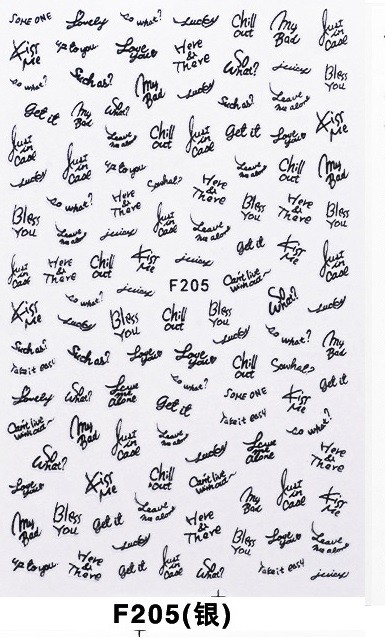 SOME ONE Lovely so what? Lucky Chill out My Bad Just in Case
Kiss Me up to you Love you Here & There So What? juicy Bless You
so what? Such as? My Bad Lucky Such as? Leave me alone
Get it My Bad So What? Just in Case Get it Love you Kiss Me
Just in Case Leave me alone Chill out
Lucky Just in Case up to you So what? Here & There Leave me alone Chill out My Bad
Bless You so what? Here & There Just in Case Leave me alone Bless You Here & There Bless You
Leave me alone juicy Kiss Me juicy Get it Kiss Me Just in Case
Just in Case Here & There Chill out
so what? juicy F205 Can't live without~ So What? Lucky
Kiss Me Lucky Bless You Chill out Bless You Lucky so what? My Bad
Such as? Such as? Love you Love you Chill out So what?
Take it easy so what? Get it
Lovely So What? Leave me alone Get it SOME ONE Kiss Me
Can't live without~ My Bad Just in Case Leave me alone Take it easy so what?
So What? Lucky Leave me alone Here & There
Love you Kiss Me Chill out Can't live without~ My Bad Just in Case Kiss Me
My Bad Bless You Get it Leave me alone Here & There Bless You Love you Leave me alone
Lucky
up to you Here & There Get it Just in Case So What? Take it easy juicy
F205(银)